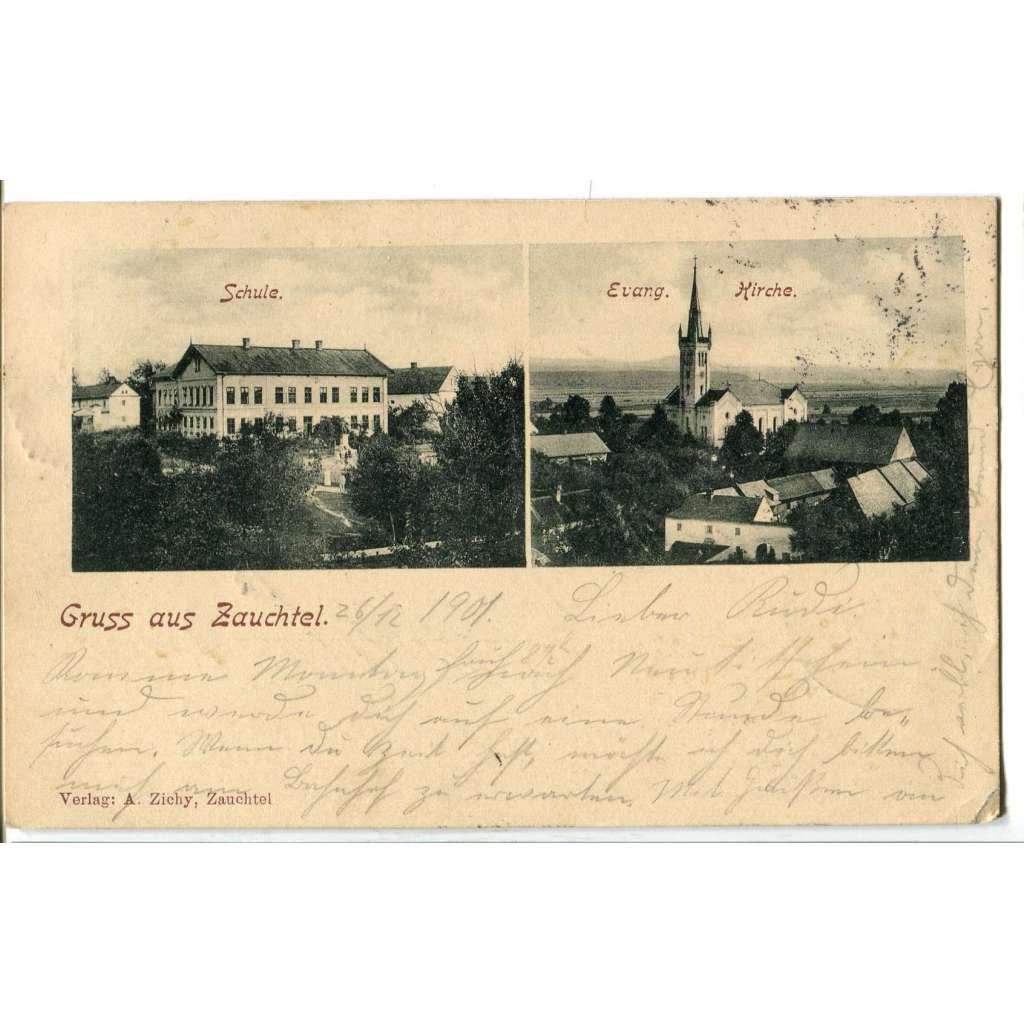 Schule.
Evang. Kirche.
Gruss aus Zauchtel. 26/12 1901. Lieber Rudi.
Komme Montag früh nach Neutitschein
und werde dich auf eine Stunde be„
suchen. Wenn du Zeit hast, möchte ich dich bitten
mich am Bahnhof zu erwarten. Mit Grüßen an
Verlag: A. Zichy, Zauchtel